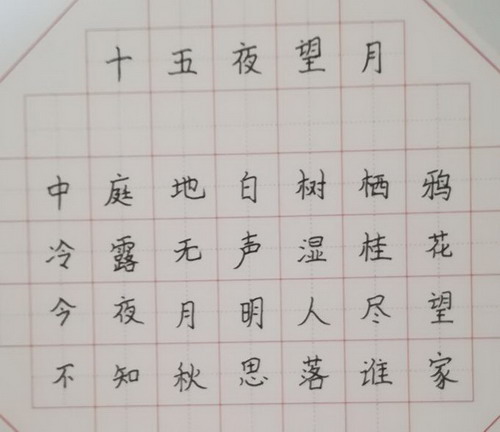 十五夜望月
中庭地白树栖鸦
冷露无声湿桂花
今夜月明人尽望
不知秋思落谁家